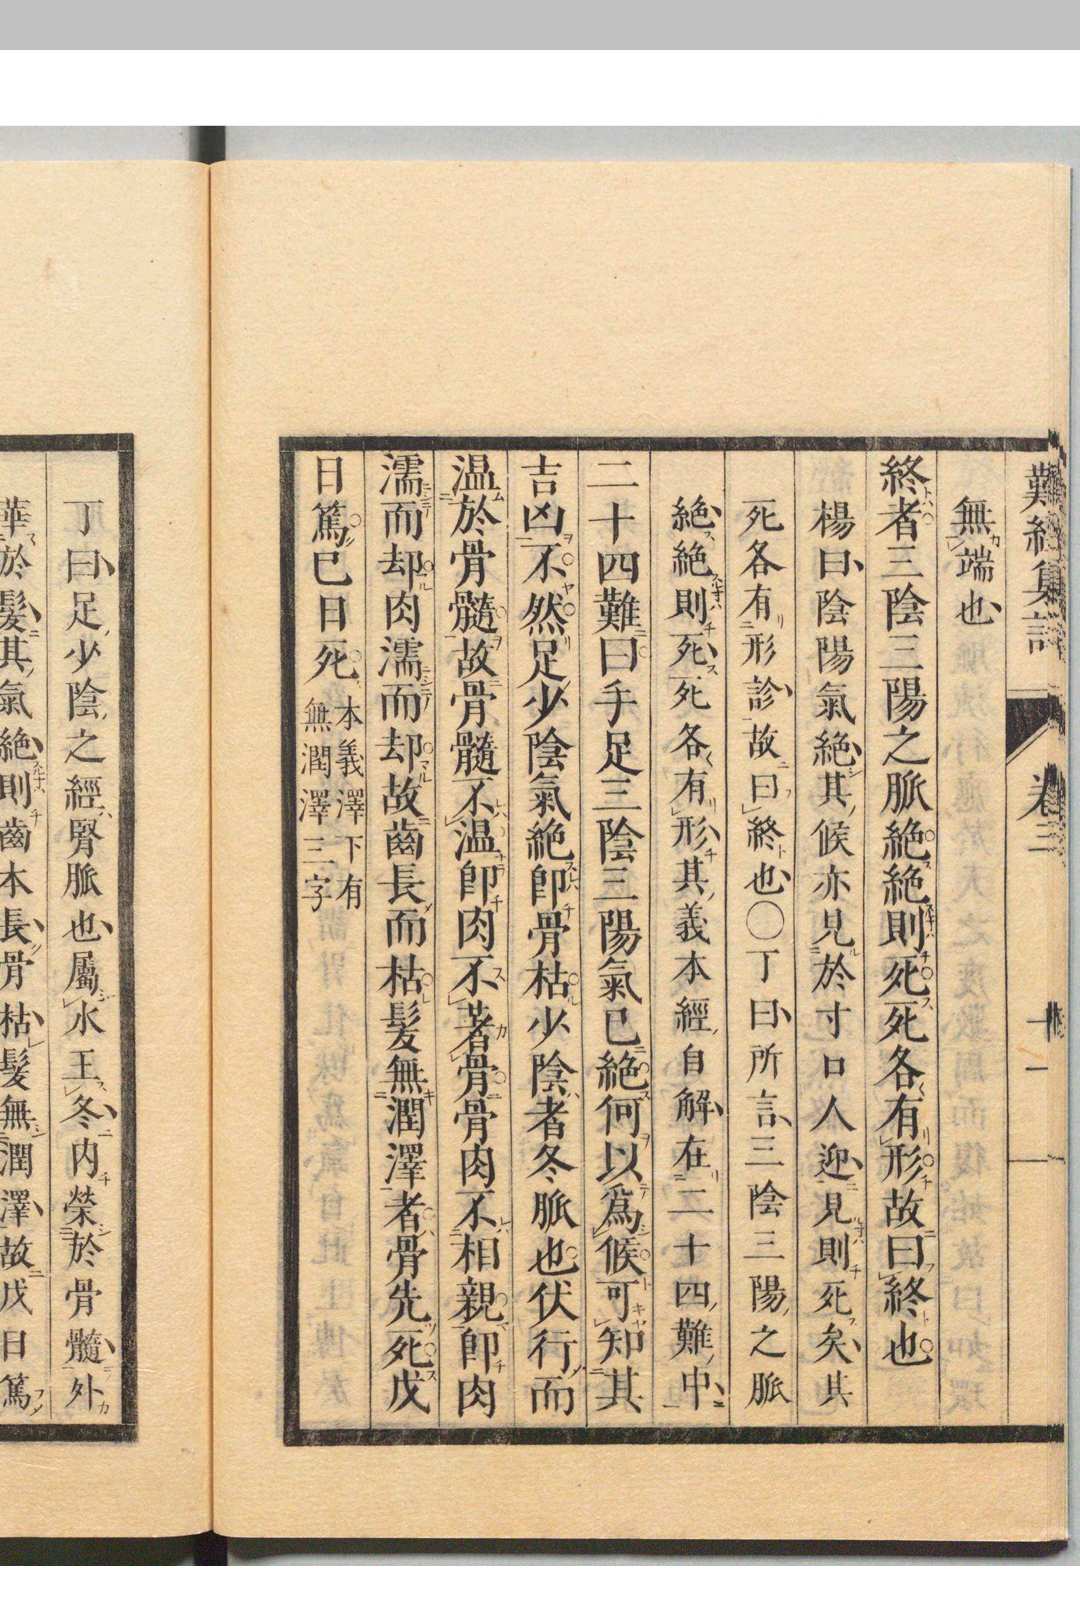 難經集註 卷三 十一
無端也
終者三陰三陽之脈絕絕則死死各有形故曰終也
楊曰陰陽氣絕其候亦見於寸口人迎見則死矣其
死各有形診故曰終也〇丁曰所言三陰三陽之脈
絕絕則死死各有形其義本經自解在二十四難中
二十四難曰手足三陰三陽氣已絕何以爲候可知其
吉凶不然足少陰氣絕卽骨枯少陰者冬脈也伏行而
温於骨髓故骨髓不温卽肉不著骨骨肉不相親卽肉
濡而却肉濡而却故齒長而枯髮無潤澤者骨先死戊
日篤已日死本義澤下有
無潤澤三字
丁曰足少陰之經腎脈也屬水王冬內榮於骨髓外
華於髮其氣絕則齒本長骨枯髮無潤澤故戊日篤